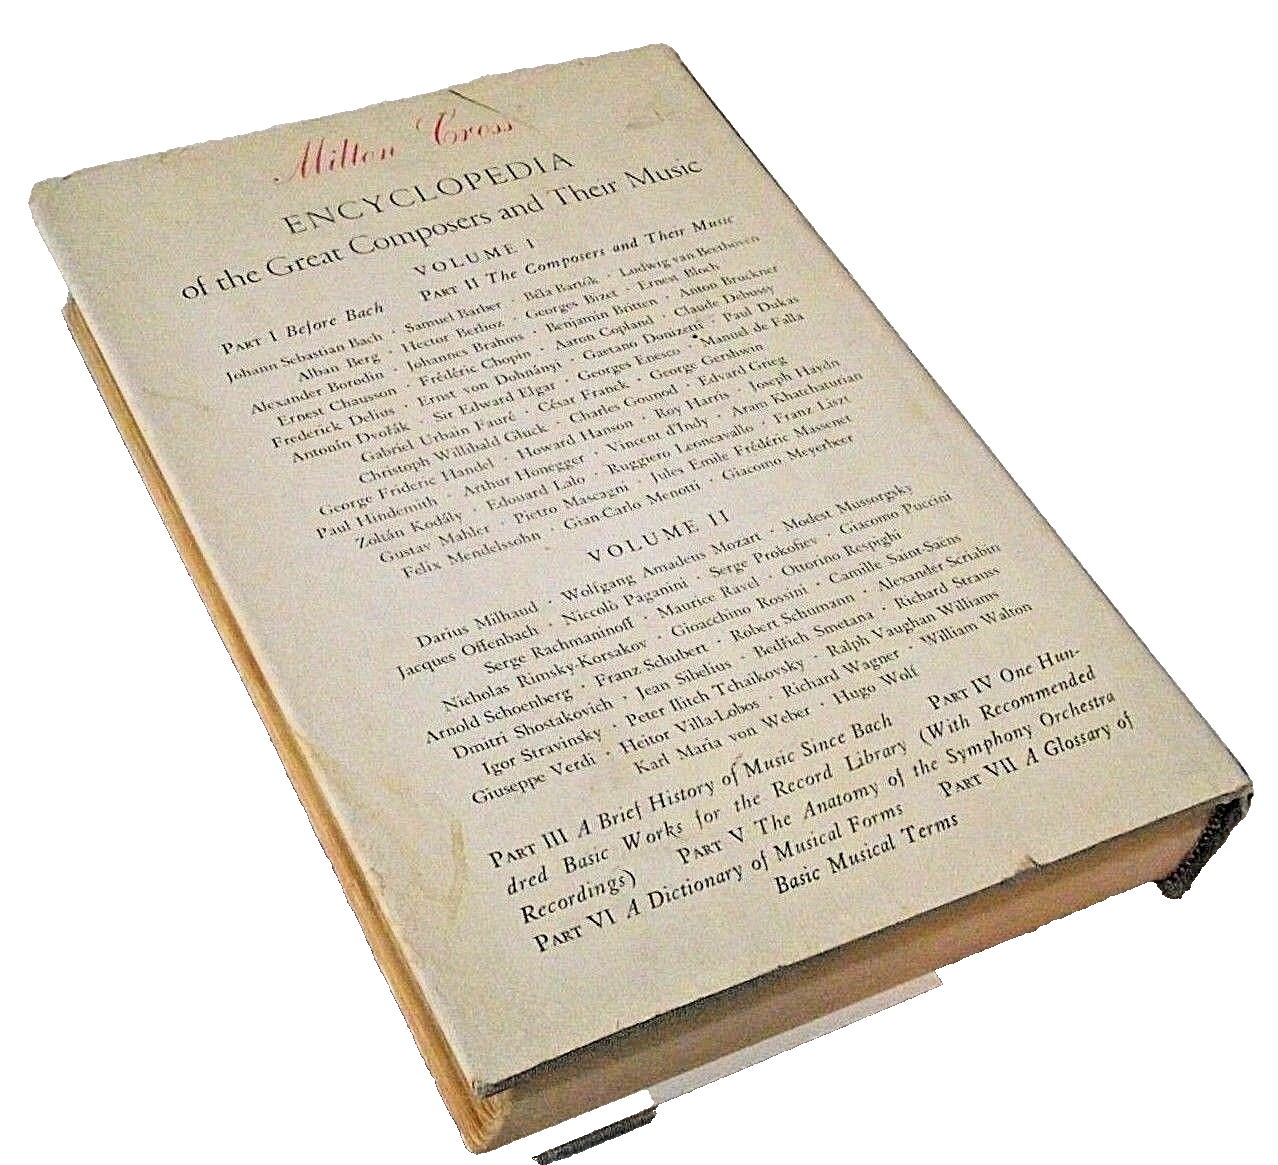 Milton Cross
ENCYCLOPEDIA
of the Great Composers and Their Music
VOLUME I
PART I Before Bach PART II The Composers and Their Music
Johann Sebastian Bach · Samuel Barber · Béla Bartók · Ludwig van Beethoven
Alban Berg · Hector Berlioz · Georges Bizet · Ernest Bloch
Alexander Borodin · Johannes Brahms · Benjamin Britten · Anton Bruckner
Ernest Chausson · Frédéric Chopin · Aaron Copland · Claude Debussy
Frederick Delius · Ernst von Dohnányi · Gaetano Donizetti · Paul Dukas
Antonín Dvořák · Sir Edward Elgar · Georges Enesco · Manuel de Falla
Gabriel Urbain Fauré · César Franck · George Gershwin
Christoph Willibald Gluck · Charles Gounod · Edvard Grieg
George Frideric Handel · Howard Hanson · Roy Harris · Joseph Haydn
Paul Hindemith · Arthur Honegger · Vincent d'Indy · Aram Khatchaturian
Zoltán Kodály · Edouard Lalo · Ruggiero Leoncavallo · Franz Liszt
Gustav Mahler · Pietro Mascagni · Jules Emile Frédéric Massenet
Felix Mendelssohn · Gian-Carlo Menotti · Giacomo Meyerbeer
VOLUME II
Darius Milhaud · Wolfgang Amadeus Mozart · Modest Mussorgsky
Jacques Offenbach · Niccolò Paganini · Serge Prokofiev · Giacomo Puccini
Serge Rachmaninoff · Maurice Ravel · Ottorino Respighi
Nicholas Rimsky-Korsakov · Gioacchino Rossini · Camille Saint-Saëns
Arnold Schoenberg · Franz Schubert · Robert Schumann · Alexander Scriabin
Dmitri Shostakovich · Jean Sibelius · Bedřich Smetana · Richard Strauss
Igor Stravinsky · Peter Ilitch Tchaikovsky · Ralph Vaughan Williams
Giuseppe Verdi · Heitor Villa-Lobos · Richard Wagner · William Walton
Karl Maria von Weber · Hugo Wolf
PART III A Brief History of Music Since Bach PART IV One Hun-
dred Basic Works for the Record Library (With Recommended
Recordings) PART V The Anatomy of the Symphony Orchestra
PART VI A Dictionary of Musical Forms PART VII A Glossary of
Basic Musical Terms